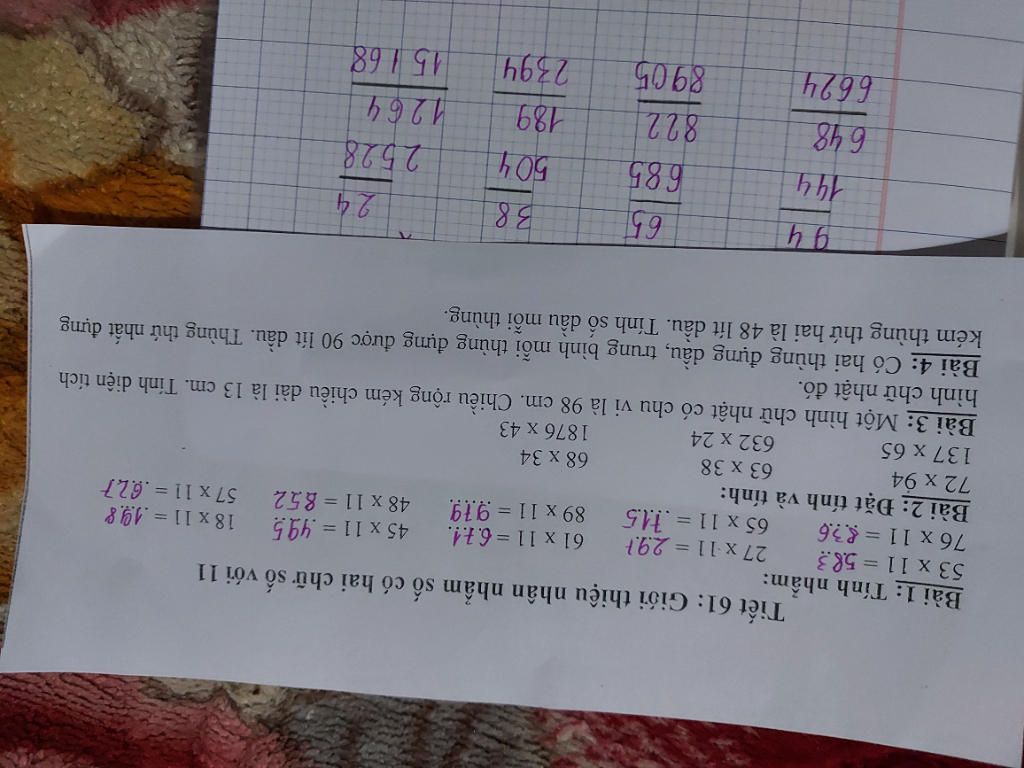 Tiết 61: Giới thiệu nhân nhẩm số có hai chữ số với 11
Bài 1: Tính nhẩm:
53 x 11 = 583 27 x 11 = 297 61 x 11 = 671 45 x 11 = 495 18 x 11 = 198
76 x 11 = 836 65 x 11 = 715 89 x 11 = 979 48 x 11 = 852 57 x 11 = 627
Bài 2: Đặt tính và tính:
72 x 94 63 x 38 68 x 34
137 x 65 632 x 24 1876 x 43
Bài 3: Một hình chữ nhật có chu vi là 98 cm. Chiều rộng kém chiều dài là 13 cm. Tính diện tích
hình chữ nhật đó.
Bài 4: Có hai thùng đựng dầu, trung bình mỗi thùng đựng được 90 lít dầu. Thùng thứ nhất đựng
kém thùng thứ hai là 48 lít dầu. Tính số dầu mỗi thùng.
94 65 38 x 24
144 685 504 2528
648 822 189 1264
6624 8905 2394 15168